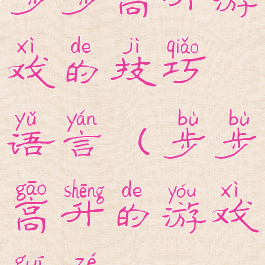 步步高升游
xì de jì qiǎo
戏的技巧
yǔ yán bù bù
语言（步步
gāo shēng de yóu xì
高升的游戏
guī zé